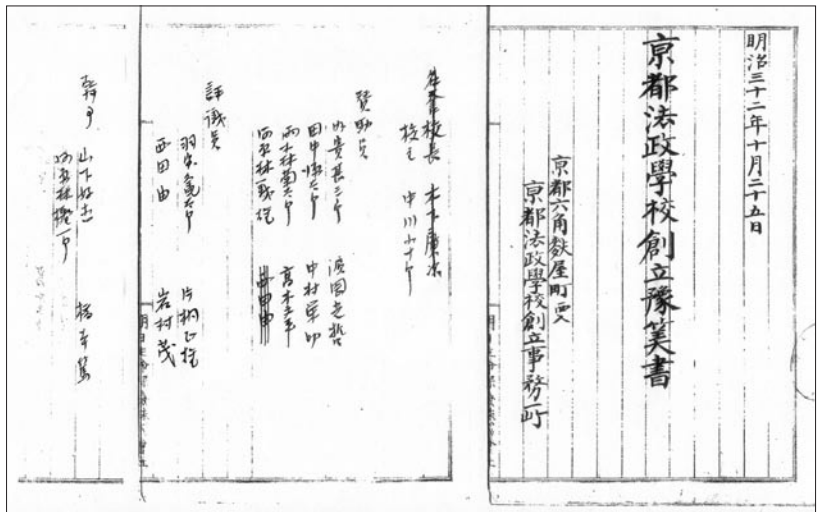 明治三十二年十月二十五日
京都法政學校創立豫筭書
京都六角麩屋町西入
京都法政學校創立事務所
名誉校長 木下廣次
校主 中川小十郎
賛助員
内貴甚三郎 濱岡光哲
田中源太郎 中村栄助
雨森菊太郎 高木文平
河原林義雄 西田由
評議員
羽室亀太郎 片桐正雄
西田由 岩村茂
幹事
山下好直 橋本篤
河原林樫一郎